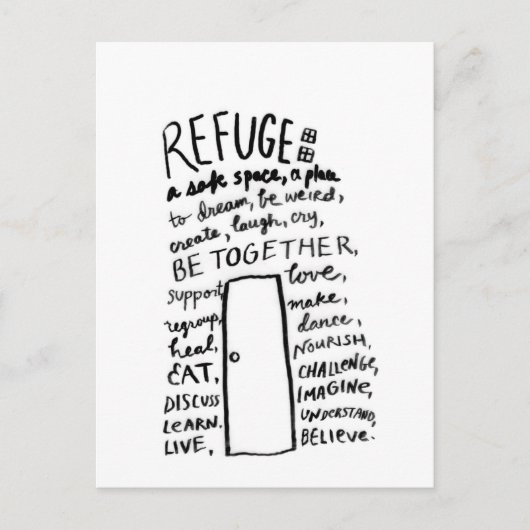 REFUGE:
a safe space, a place
to dream, be weird,
create, laugh, cry,
BE TOGETHER,
support, love,
regroup, make,
heal, dance,
EAT, NOURISH,
DISCUSS CHALLENGE,
LEARN. IMAGINE,
LIVE, UNDERSTAND,
BELIEVE.